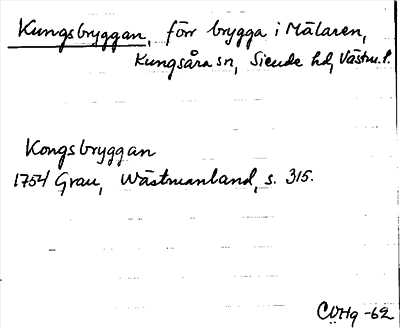 Kungsbryggan, förr brygga i Mälaren,
Kungsåra sn, Siende hd, Västm.l.
Kongsbryggan
1754 Grau, Wästmanland, s. 315.
COHg -62